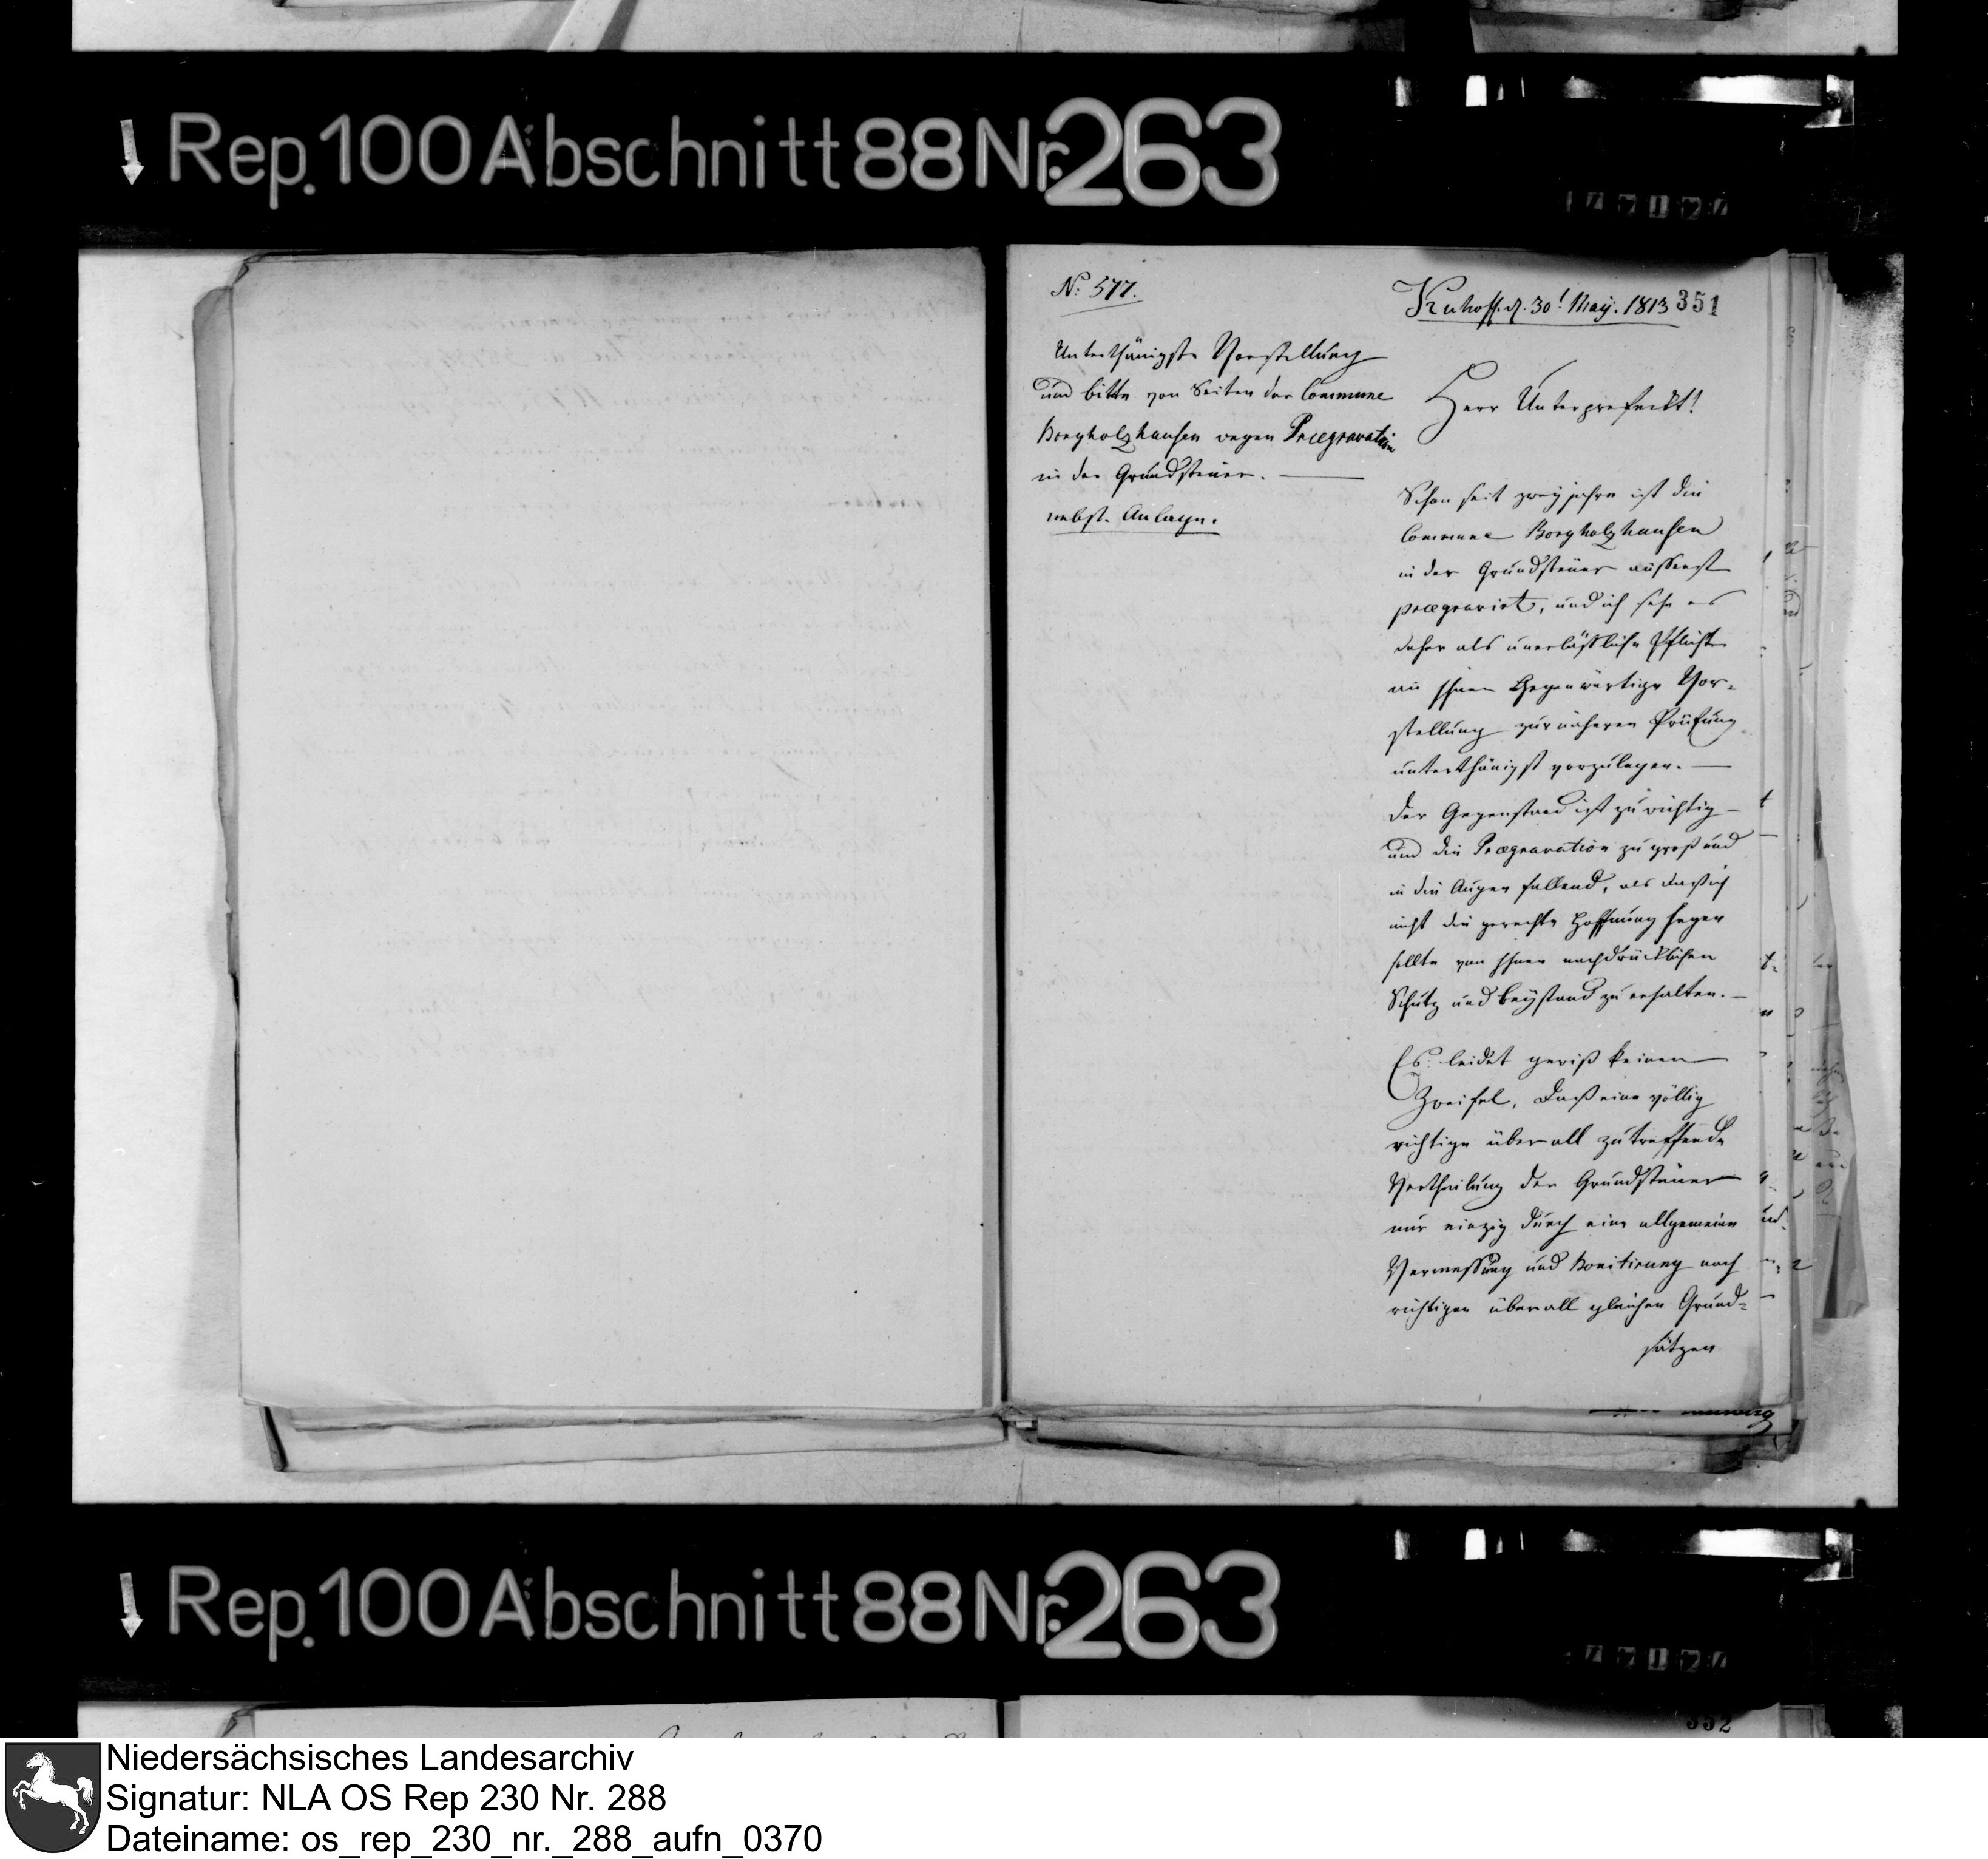 Rep. 100 Abschnitt 88 Nr. 263
N: 577.
Unterthänigste Vorstellung
und bitte von Seiten der Commune
Borgholzhausen wegen Praegravation
in der Grundsteuer. —
nebst. Anlage.
Kuhoff. d. 30t May. 1813
351
Herr Unterprefeckt!
Schon seit zwey jahre ist die
Commune Borgholzhausen
in der Grundsteuer äusserst
praegravirt, und ich sehe es
daher als unerläßliche Pflicht
an Ihnen Gegenwärtige Vor-
stellung zur näheren Prüfung
unterthänigst vorzulegen. —
Der Gegenstand ist zu wichtig —
und die Praegravation zu groß und
in die Augen fallend, als daß ich
nicht die gerechte Hoffnung hegen
sollte von Ihnen nachdrücklichen
Schutz und beystand zu erhalten. —
Es leidet gewiß keinen
Zweifel, daß eine völlig
richtige überall zutreffende
Vertheilung der Grundsteuer
nur einzig durch eine allgemeine
Vermessung und Bonitirung nach
richtigen überall gleichen Grund-
sätzen
Rep. 100 Abschnitt 88 Nr. 263
352
Niedersächsisches Landesarchiv
Signatur: NLA OS Rep 230 Nr. 288
Dateiname: os_rep_230_nr._288_aufn_0370